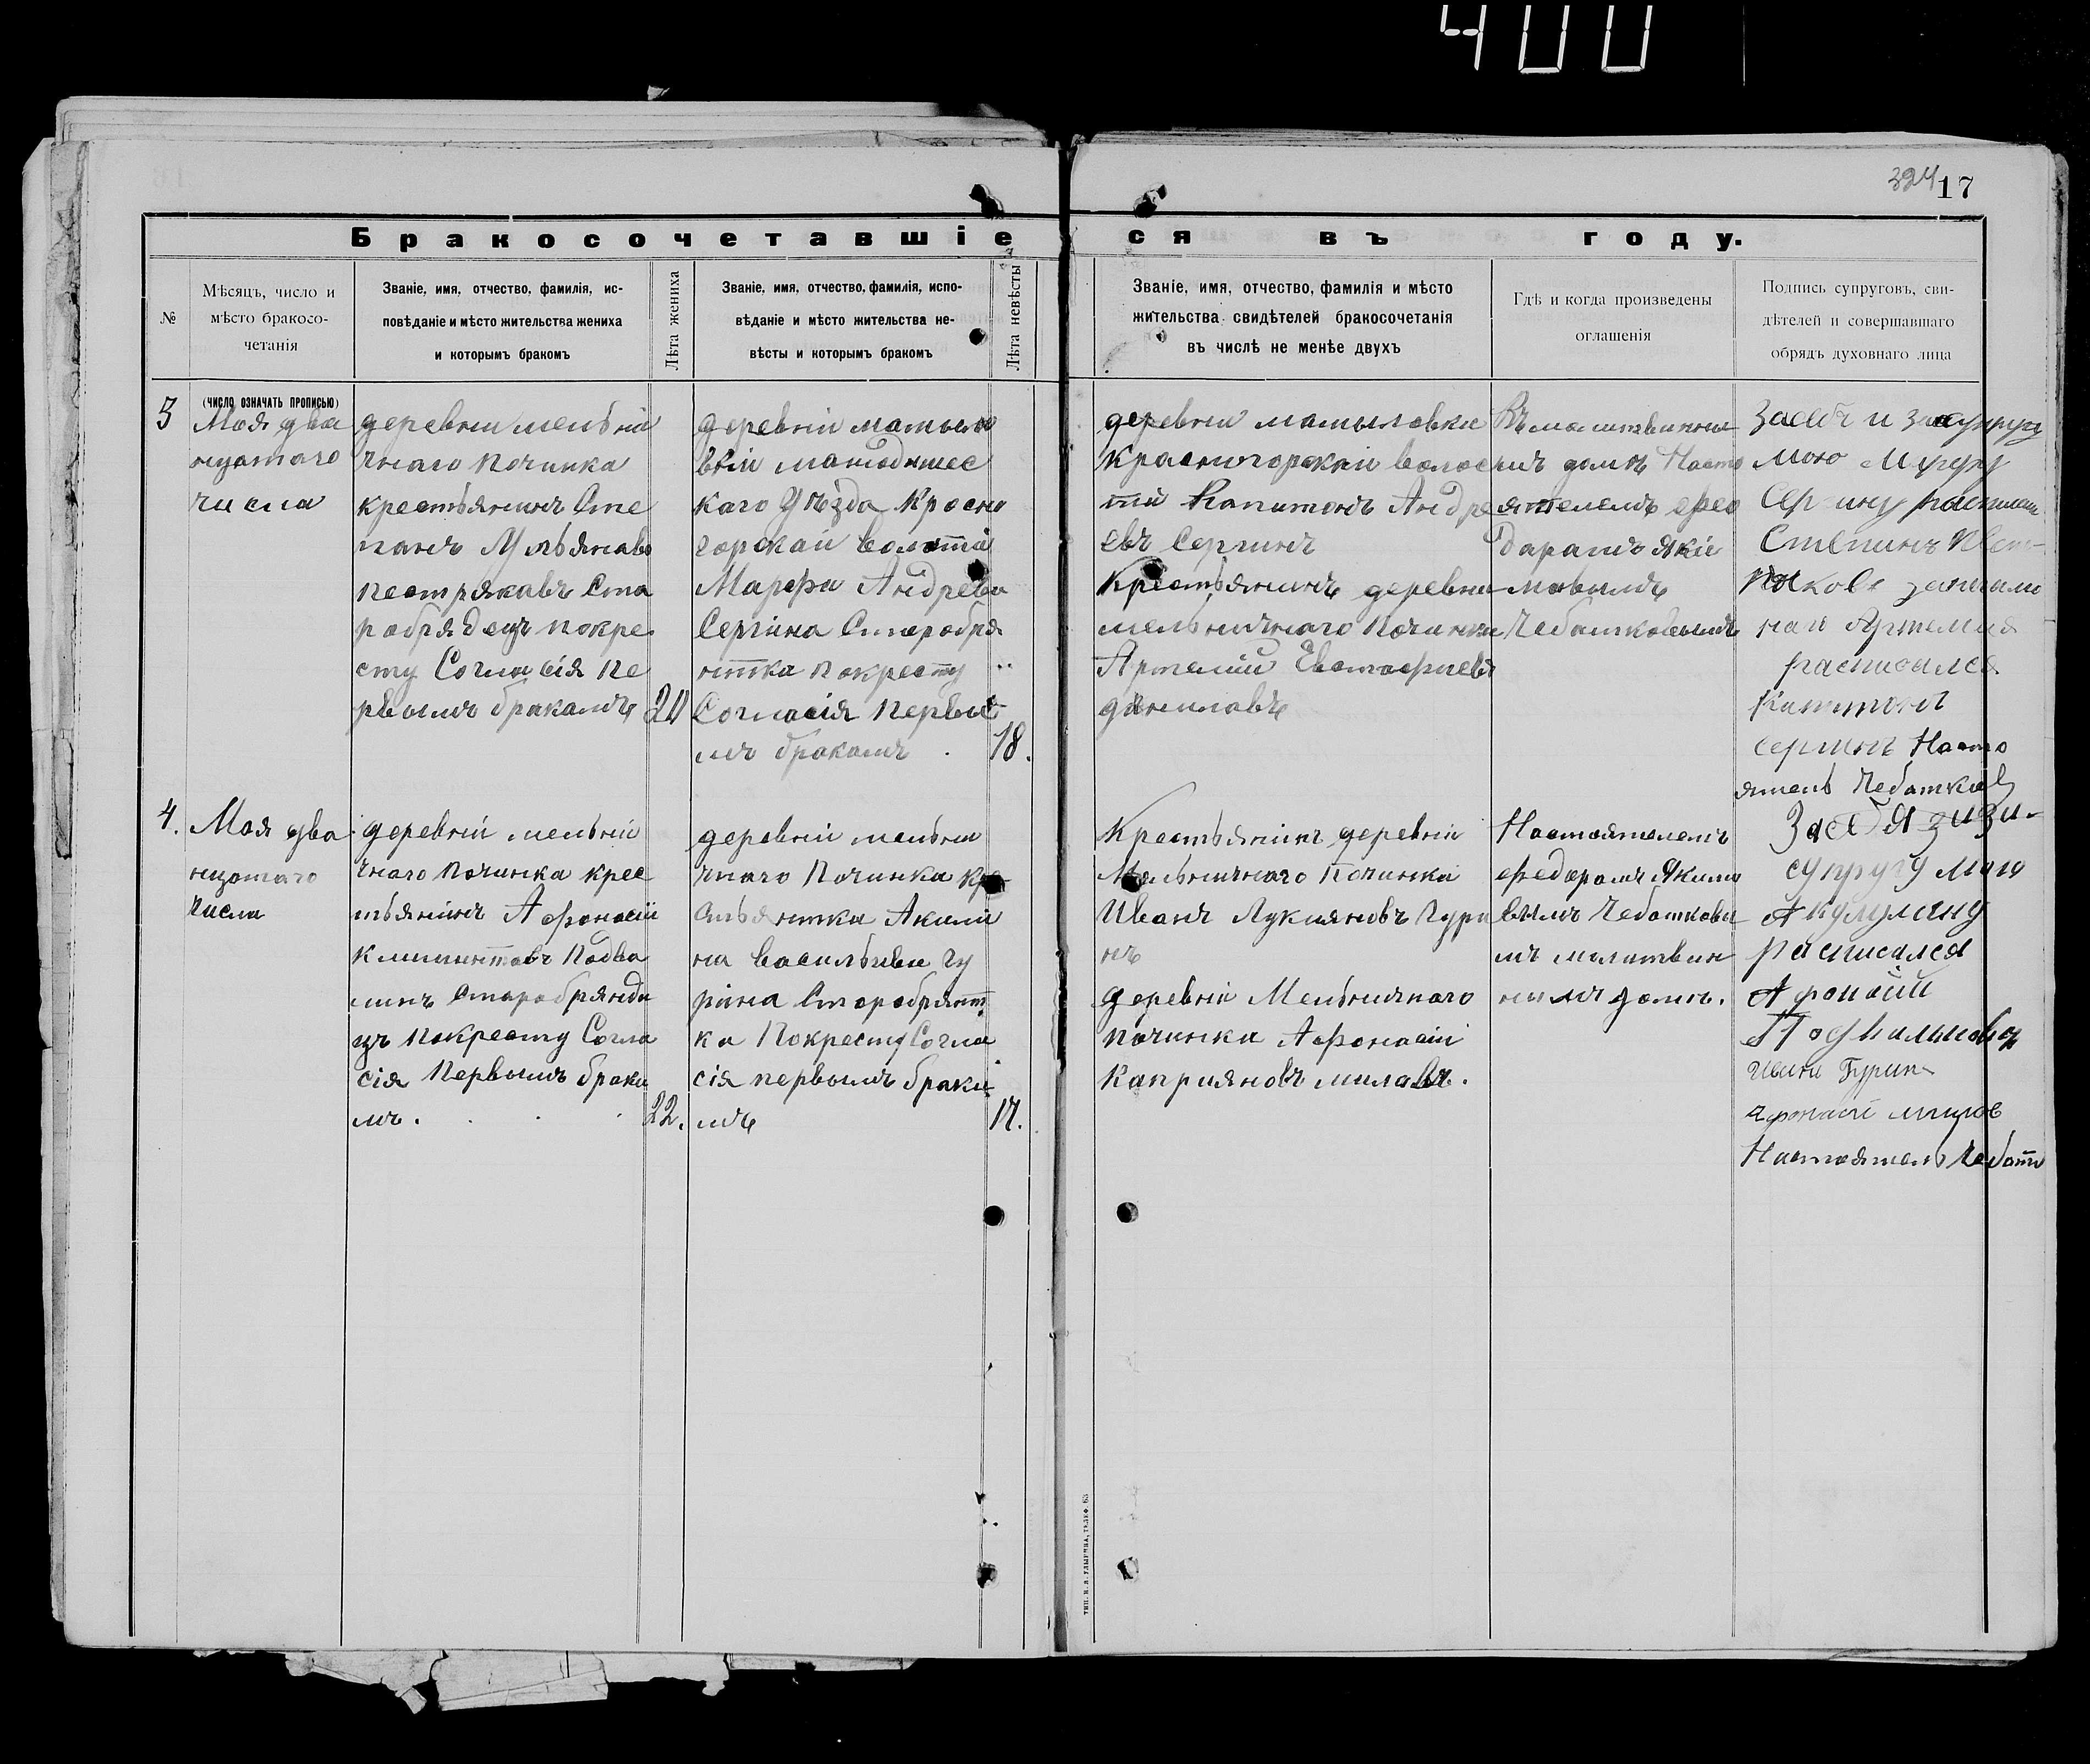 400
324 17
Бракосочетавшіе ся въ году.
№
Мѣсяцъ, число и
мѣсто бракосо-
четанія
Званіе, имя, отчество, фамилія, ис-
повѣданіе и мѣсто жительства жениха
и которымъ бракомъ
Лѣта жениха
Званіе, имя, отчество, фамилія, испо-
вѣданіе и мѣсто жительства не-
вѣсты и которымъ бракомъ
Лѣта невѣсты
Званіе, имя, отчество, фамилія и мѣсто
жительства свидѣтелей бракосочетанія
въ числѣ не менѣе двухъ
Гдѣ и когда произведены
оглашенія
Подпись супруговъ, сви-
дѣтелей и совершавшаго
обрядъ духовнаго лица
(число означать прописью)
3
Мая два
нцатаго
числа
деревни мельни
чнаго Починка
крестьянинъ Сте
панъ
Пестряковъ Ста
робрядецъ покре
сту Согласія пе
рвымъ бракамъ
20
деревніи
каго Уѣзда Красно
горскаи волости
Марфа Андрева
Сергіна Старобря
нтка покресту
Согласія первы
мъ бракамъ
18.
деревни мамыловки
Красногорскаи волос
ти Капитонъ Андре
евъ Сергинъ
Крестьянинъ деревни
мельничнаго Починка
Артемии Евстафиевъ
даниловъ
Въ молитвинно
мъ домѣ Насто
ятелемъ фео
дарамъ Яки
мовымъ
Чебатковымъ
за себя и за супругу
мою Марфу
Сергину
Степинъ
расписался
Капитон
Сергинъ Насто
ятель Чебатков
4.
Мая два
нцатаго
числа
деревніи мельни
чнаго Починка крес
тьянинъ Афонасіи
Климинтовъ Подва
линъ Старобрянде
цъ покресту Согла
сія Первымъ брака
мъ.
22.
деревніи мельни
чнаго Починка Кре
стьянтка Акали
на васильива Гу
ріна Старобрянт
ка Покресту Согла
сія первымъ брака
мъ
17.
Крестьянинъ деревніи
Мельничнаго Починка
Иванъ Лукияновъ Гури
нъ
деревніи Мельничнаго
починка Афонасіи
Каприяновъ миловъ.
Настоятелемъ
федорамъ Якимо
вымъ Чебаткавы
мъ малитвин
нымъ домъ.
За себя и за
супругу маю
Акулулину
расписался
Афонасіи
Ивана Гурин
афонасіи милов
Настоятель Чебатк